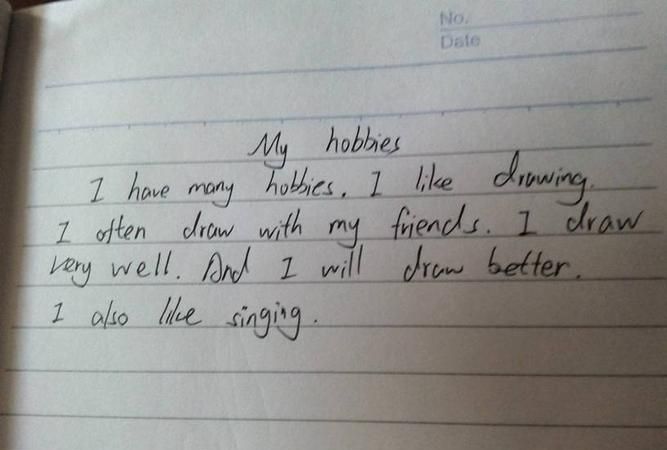 No.
Date
My hobbies
I have many hobbies. I like drawing.
I often draw with my friends. I draw
very well. And I will draw better.
I also like singing.